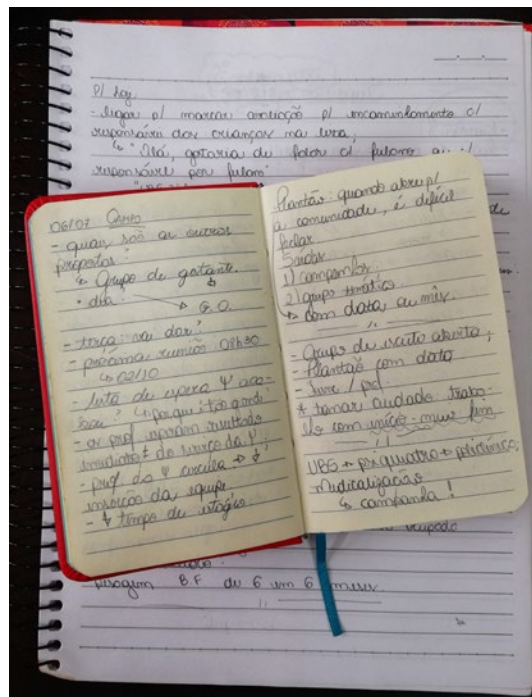 P/ hoje
- ligar p/ marcar avaliação p/ encaminhamento c/
responsáveis das crianças na lista;
↳ "Olá, gostaria de falar c/ fulano ou c/
responsável por fulan"
06/07 CAMPO
- quais são as outras
propostas?
↳ Grupo de gestante.
• dia:
→ G.O.
- terça: vai dar?
- próxima reunião 08h30
↳ 02/10
- lista de espera Ψ
↳ porque
- os prof. esperam resultado
imediato do serviço da Ψ.
- prof. da Ψ
inserção da equipe
- ↓ tempo de estágio
Plantão: quando abre p/
a comunidade, é difícil
fechar
Saídas
1) campanhas;
2) grupo temático
↳ com data ou mês.
- Grupo de escuta aberta;
- Plantão com data
- livre / prof.
* tomar cuidado traba-
lho com início-meio fim
UBS + psiquiatra + policlínica
Medicalização
↳ campanha!
ocupado
pesagem B.F de 6 em 6 meses